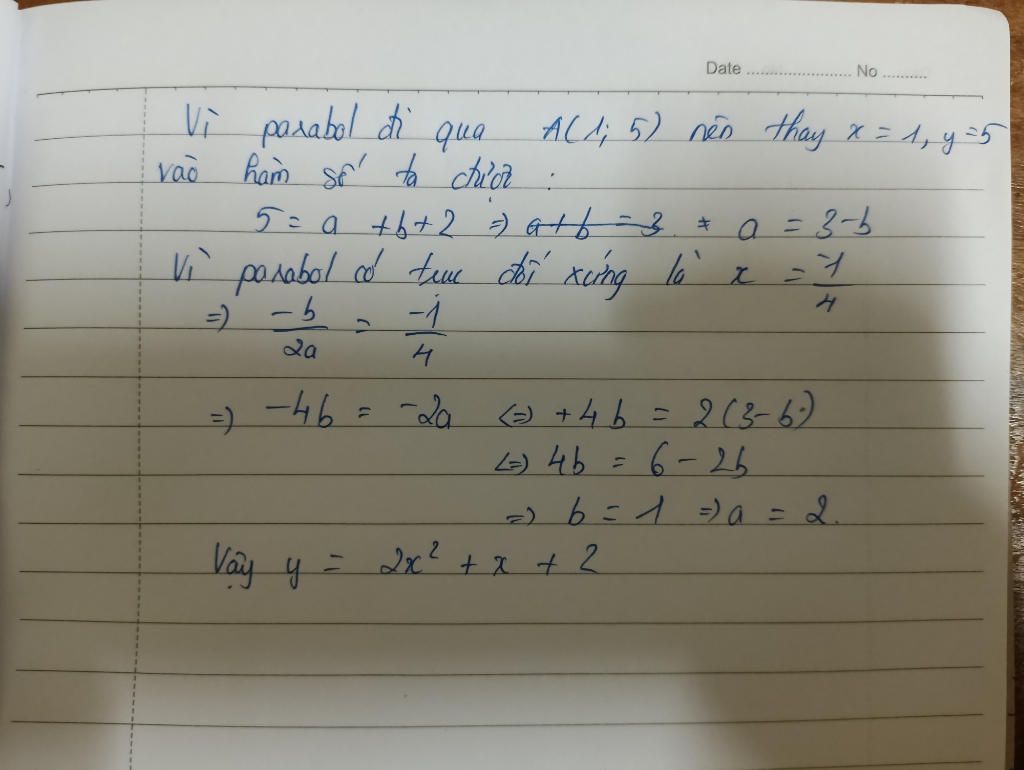 Date ........................ No ..........
Vì parabol đi qua A(1; 5) nên thay x = 1, y=5
vào hàm số ta được :
5 = a + b + 2 => a + b = 3. * a = 3 - b
Vì parabol có trục đối xứng là x = -1/4
=> -b/2a = -1/4
=> -4b = -2a <=> +4b = 2(3-b)
<=> 4b = 6 - 2b
=> b = 1 => a = 2.
Vậy y = 2x² + x + 2